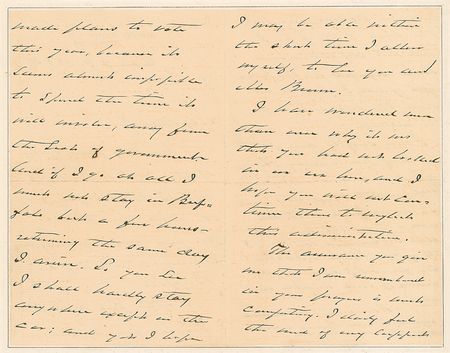 made plans to vote
this year, because it
seems almost impossible
to spend the time it
will involve, away from
the seat of government
and if I go at all I
must not stay in Buf-
falo but a few hours -
returning the same day
I arrive. So you see
I shall hardly stay
anywhere except in the
car; and yet I hope
I may be able within
the short time I allow
myself, to see you and
Mrs
I have wondered more
than once why it was
that you had not looked
in on us here, and I
hope you will not con-
tinue thus to neglect
this administration.
The assurance you give
me that I am remembered
in your prayers is most
comforting. I daily feel
the need of any support